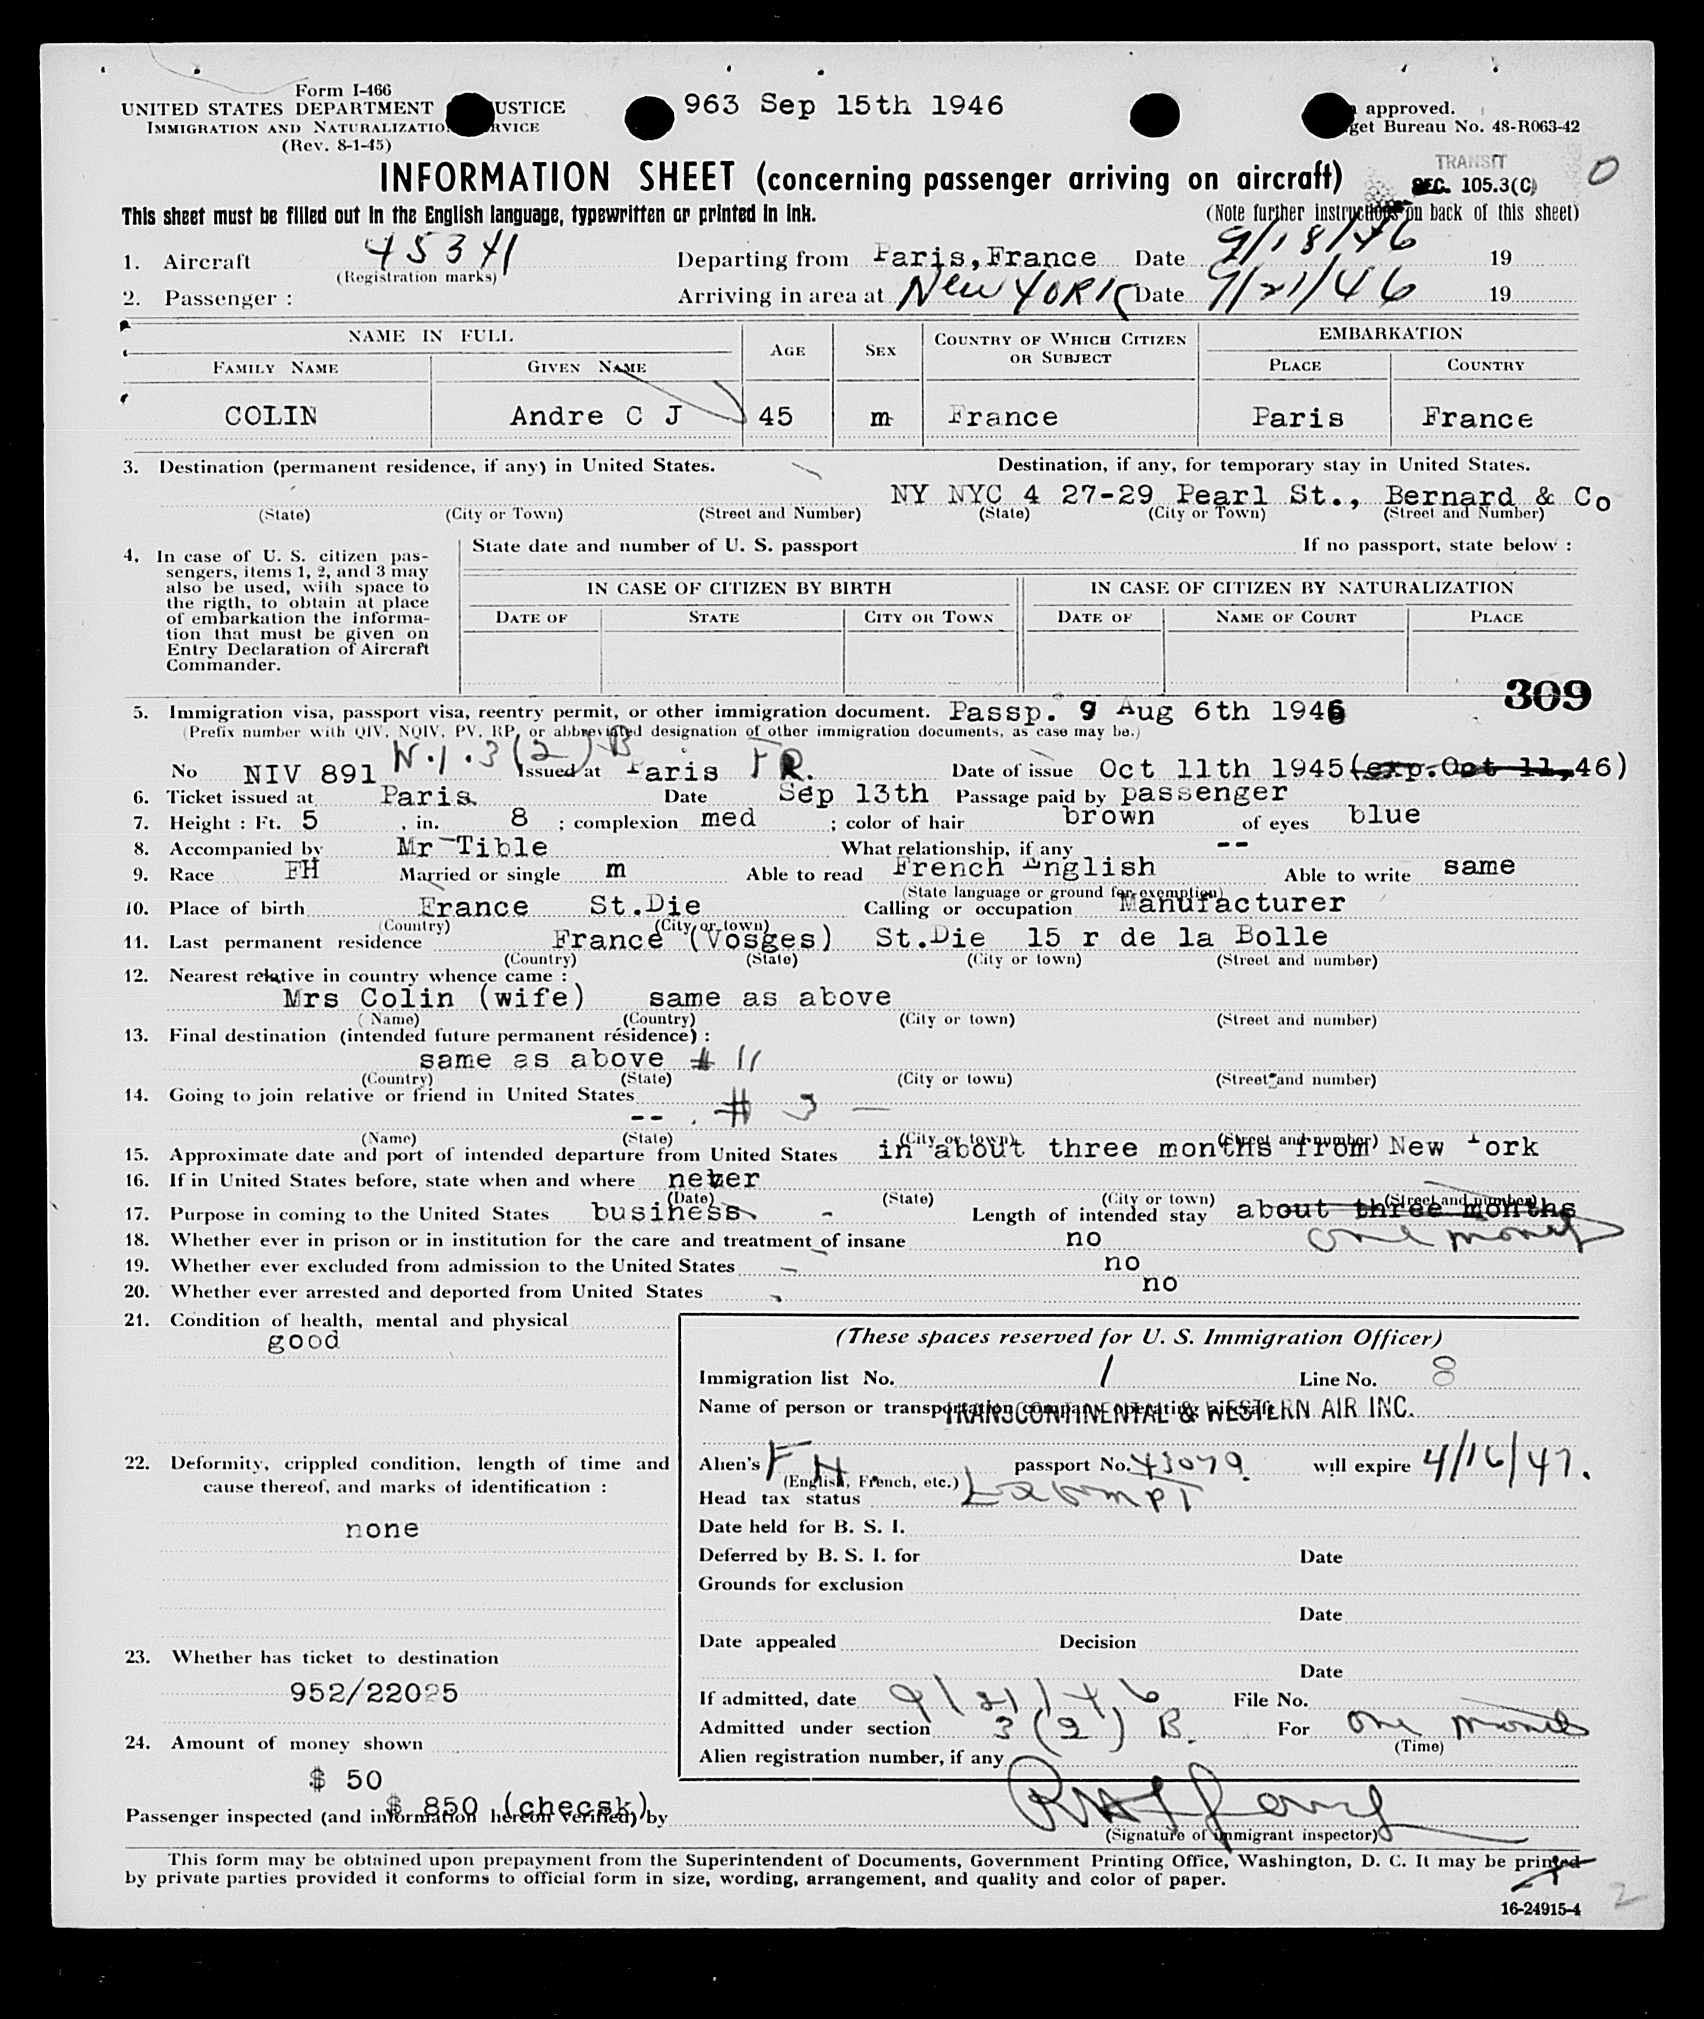 Form I-466
UNITED STATES DEPARTMENT USTICE
963 Sep 15th 1946
approved.
IMMIGRATION AND NATURALIZATIO RVICE
get Bureau No. 48-R063-42
(Rev. 8-1-45)
TRANSIT
INFORMATION SHEET (concerning passenger arriving on aircraft)
SEC. 105.3(C)
0
This sheet must be filled out in the English language, typewritten or printed in ink.
(Note further instructions on back of this sheet)
1. Aircraft 45341 Departing from Paris, France Date 9/18/46 19
(Registration marks)
2. Passenger : Arriving in area at New YORK Date 9/21/46 19
NAME IN FULL AGE SEX COUNTRY OF WHICH CITIZEN OR SUBJECT EMBARKATION
FAMILY NAME GIVEN NAME PLACE COUNTRY
COLIN Andre C J 45 m France Paris France
3. Destination (permanent residence, if any) in United States. Destination, if any, for temporary stay in United States.
NY NYC 4 27-29 Pearl St., Bernard & Co
(State) (City or Town) (Street and Number) (State) (City or Town) (Street and Number)
4. In case of U. S. citizen pas-
sengers, items 1, 2, and 3 may
also be used, with space to
the rigth, to obtain at place
of embarkation the informa-
tion that must be given on
Entry Declaration of Aircraft
Commander.
State date and number of U. S. passport If no passport, state below :
IN CASE OF CITIZEN BY BIRTH IN CASE OF CITIZEN BY NATURALIZATION
DATE OF STATE CITY OR TOWN DATE OF NAME OF COURT PLACE
309
5. Immigration visa, passport visa, reentry permit, or other immigration document. Passp. 9 Aug 6th 1946
(Prefix number with QIV, NQIV, PV, RP, or abbreviated designation of other immigration documents, as case may be.)
N.I.3(2)B
No NIV 891 Issued at Paris FR. Date of issue Oct 11th 1945 (exp. Oct 11, 46)
6. Ticket issued at Paris Date Sep 13th Passage paid by passenger
7. Height : Ft. 5 , in. 8 ; complexion med ; color of hair brown of eyes blue
8. Accompanied by Mr Tible What relationship, if any --
9. Race FH Married or single m Able to read French English Able to write same
(State language or ground for exemption)
10. Place of birth France St.Die Calling or occupation Manufacturer
(Country) (City or town)
11. Last permanent residence France (Vosges) St.Die 15 r de la Bolle
(Country) (State) (City or town) (Street and number)
12. Nearest relative in country whence came :
Mrs Colin (wife) same as above
(Name) (Country) (City or town) (Street and number)
13. Final destination (intended future permanent résidence) :
same as above # 11
(Country) (State) (City or town) (Street and number)
14. Going to join relative or friend in United States
-- . # 3 —
(Name) (State) (City or town) (Street and number)
15. Approximate date and port of intended departure from United States in about three months from New York
16. If in United States before, state when and where never
(Date) (State) (City or town) (Street and number)
17. Purpose in coming to the United States business - Length of intended stay about three months
one month
18. Whether ever in prison or in institution for the care and treatment of insane no
19. Whether ever excluded from admission to the United States no
20. Whether ever arrested and deported from United States no
21. Condition of health, mental and physical
good
22. Deformity, crippled condition, length of time and
cause thereof, and marks of identification :
none
23. Whether has ticket to destination
952/22025
24. Amount of money shown
$ 50
$ 850 (checsk)
(These spaces reserved for U. S. Immigration Officer)
Immigration list No. 1 Line No. 8
Name of person or transportation company operating aircraft TRANSCONTINENTAL & WESTERN AIR INC.
Alien's FH passport No. 43079 will expire 4/16/47.
(English, French, etc.)
Head tax status Exempt
Date held for B. S. I.
Deferred by B. S. I. for Date
Grounds for exclusion
Date
Date appealed Decision
Date
If admitted, date 9/21/46 File No.
Admitted under section 3(2)B. For One month
(Time)
Alien registration number, if any
Passenger inspected (and information hereon verified) by
(Signature of immigrant inspector)
This form may be obtained upon prepayment from the Superintendent of Documents, Government Printing Office, Washington, D. C. It may be printed
by private parties provided it conforms to official form in size, wording, arrangement, and quality and color of paper.
16-24915-4
2